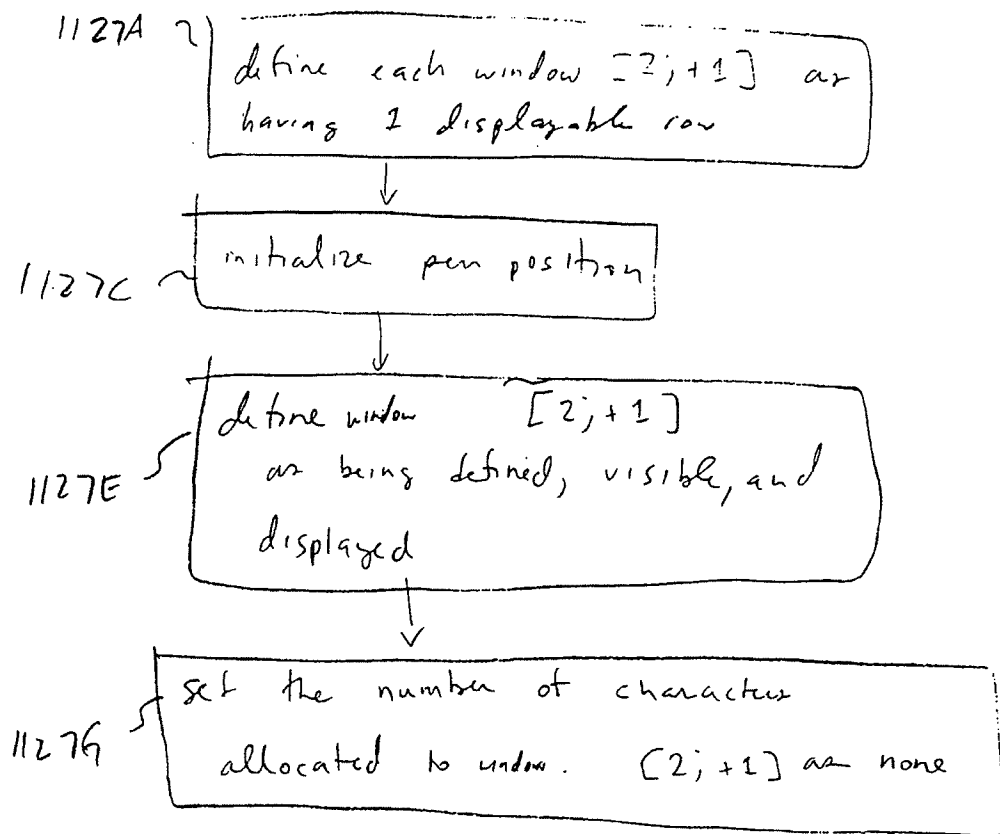 1127A
define each window [2j+1] as
having 1 displayable row
1127C
initialize pen position
1127E
define window [2j+1]
as being defined, visible, and
displayed
1127G
set the number of characters
allocated to window. [2j+1] as none